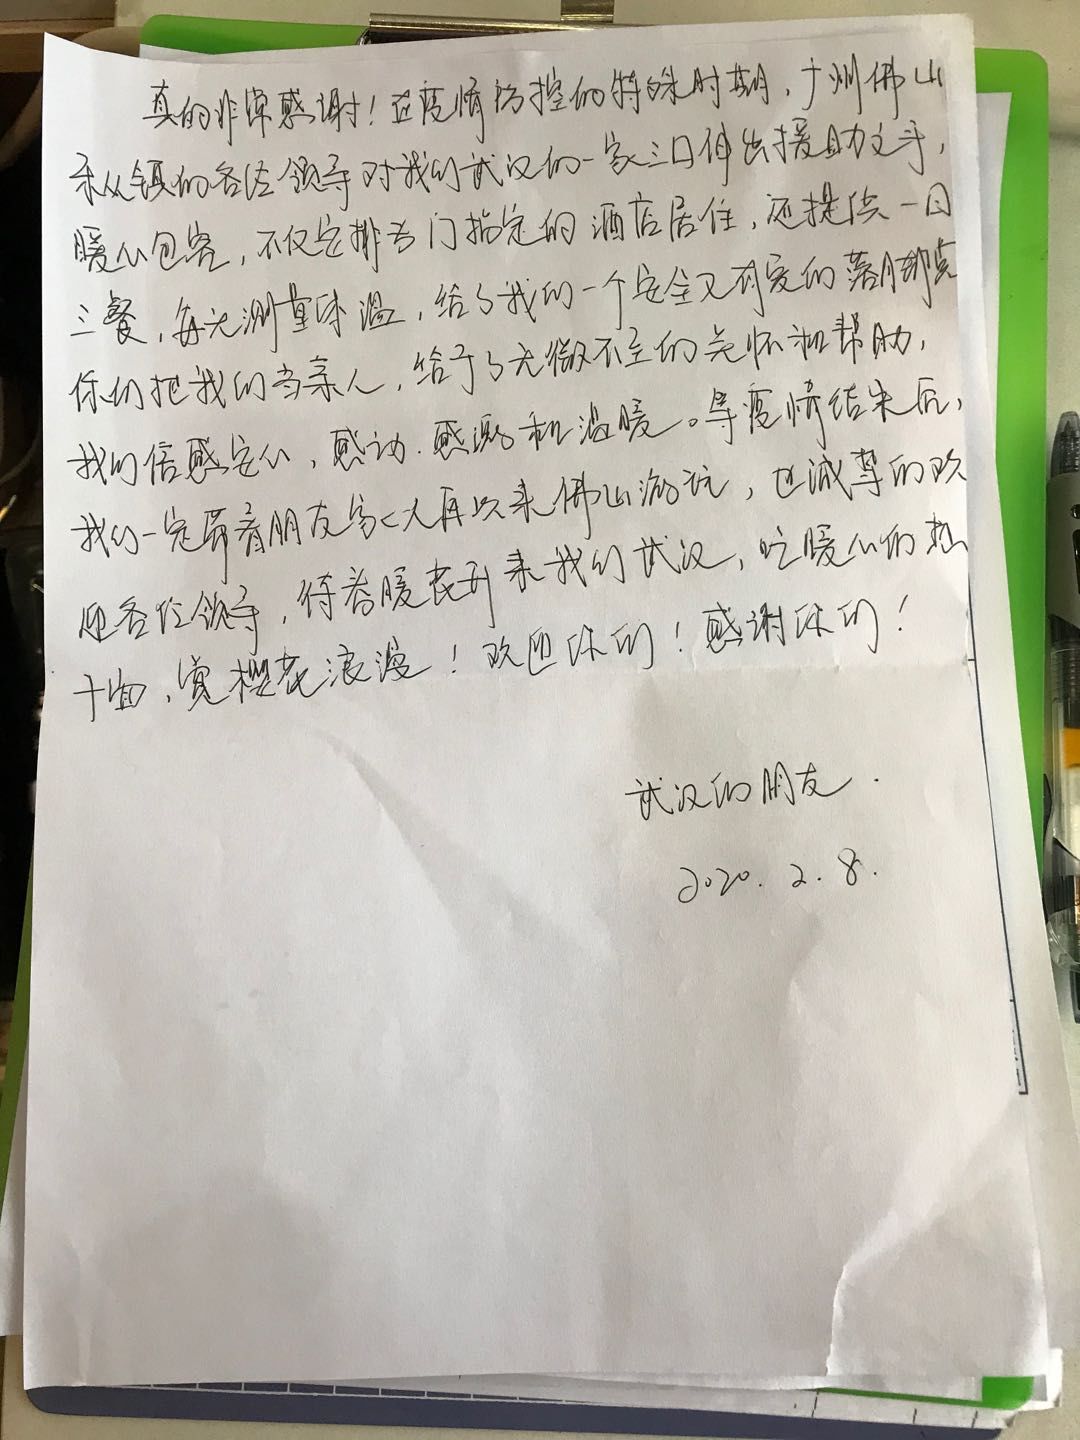 真的非常感谢！在疫情防控的特殊时期，广州佛山
乐从镇的各位领导对我们武汉的一家三口伸出援助之手，
暖心包容，不仅安排专门指定的酒店居住，还提供一日
三餐，每天测量体温，给了我们一个安全又有爱的落脚点
你们把我们当亲人，给予了无微不至的关怀和帮助，
我们倍感安心，感动.感激和温暖。等疫情结束后，
我们一定带着朋友家人再次来佛山游玩，也诚挚的欢
迎各位领导，待春暖花开来我们武汉，吃暖心的热
干面，赏樱花浪漫！欢迎你们！感谢你们！
武汉的朋友.
2020.2.8.